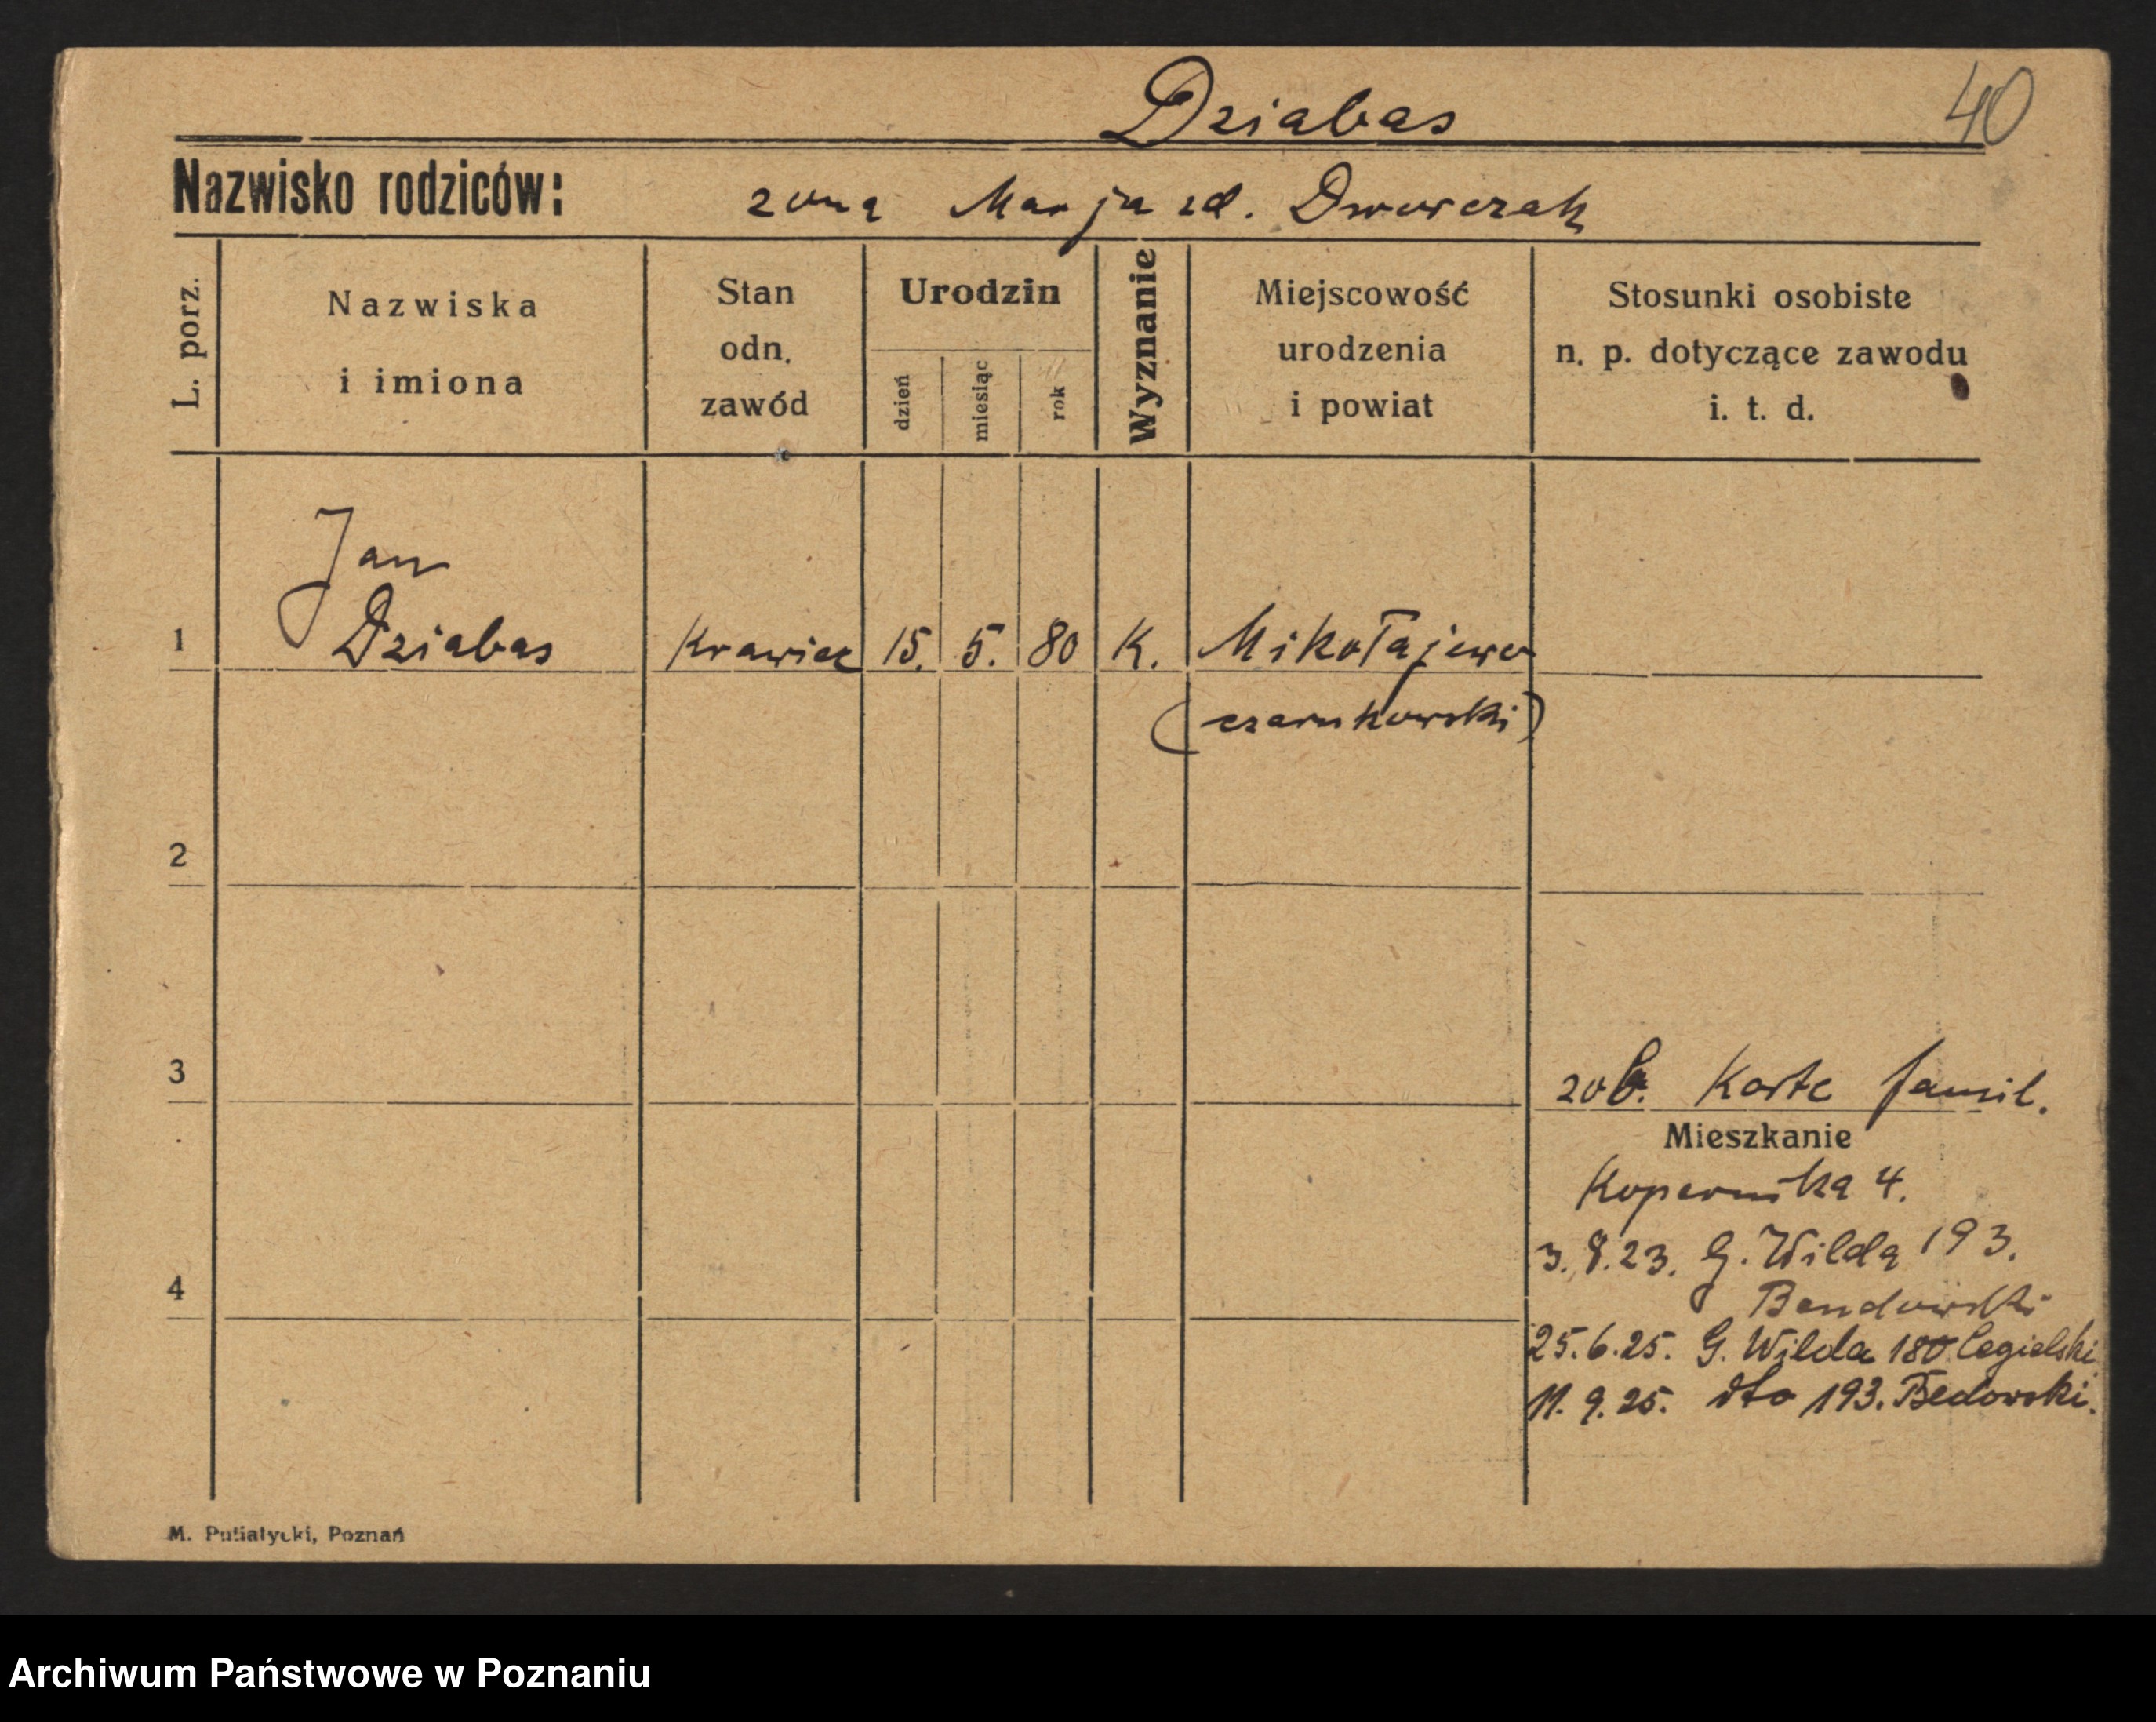 Dziabas
40
Nazwisko rodziców: żona Marja zd. Dworczak
L. porz.
Nazwiska i imiona
Stan odn. zawód
Urodzin
dzień
miesiąc
rok
Wyznanie
Miejscowość urodzenia i powiat
Stosunki osobiste n. p. dotyczące zawodu i. t. d.
Jan
1 Dziabas Krawiec 15. 5. 80 K. Mikołajewo
(czarnkowski)
2
3
zob. Karte famil.
Mieszkanie
Kopernika 4.
3. 8. 23. G. Wilda 193.
4
Bendowski
25. 6. 25. G. Wilda 180 Cegielski
11. 9. 25. dto 193. Bedowski.
M. Putiatycki, Poznań
Archiwum Państwowe w Poznaniu